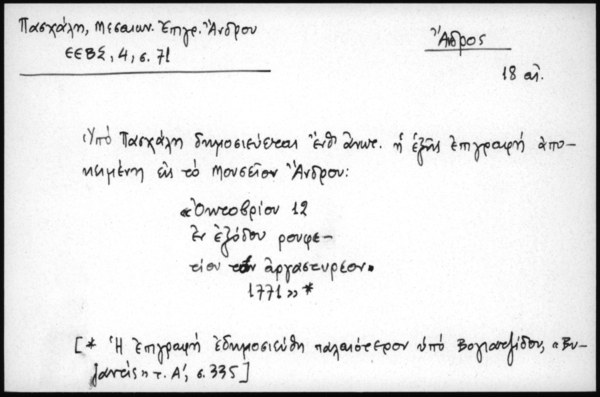 Πασχάλη, Μεσαιων. Ἐπιγρ. Ἄνδρου
ΕΕΒΣ, 4, σ. 71
Ἄνδρος
18 αἰ.
Ὑπὸ Πασχάλη δημοσιεύεται ἔνθ' ἀνωτ. ἡ ἑξῆς ἐπιγραφὴ ἀπο-
κειμένη εἰς τὸ Μουσεῖον Ἄνδρου:
«Ὀκτοβρίου 12
ἐν ἐξόδου ρουφε-
τίου τõν ἀργαστυρέον.
1771» *
[* Ἡ ἐπιγραφὴ ἐδημοσιεύθη παλαιότερον ὑπὸ Βογιατζίδου, «Βυ-
ζαντὶς» τ. Α', σ. 335]